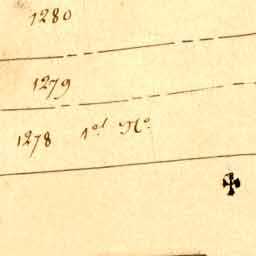 1280
1279
1278 1ol No